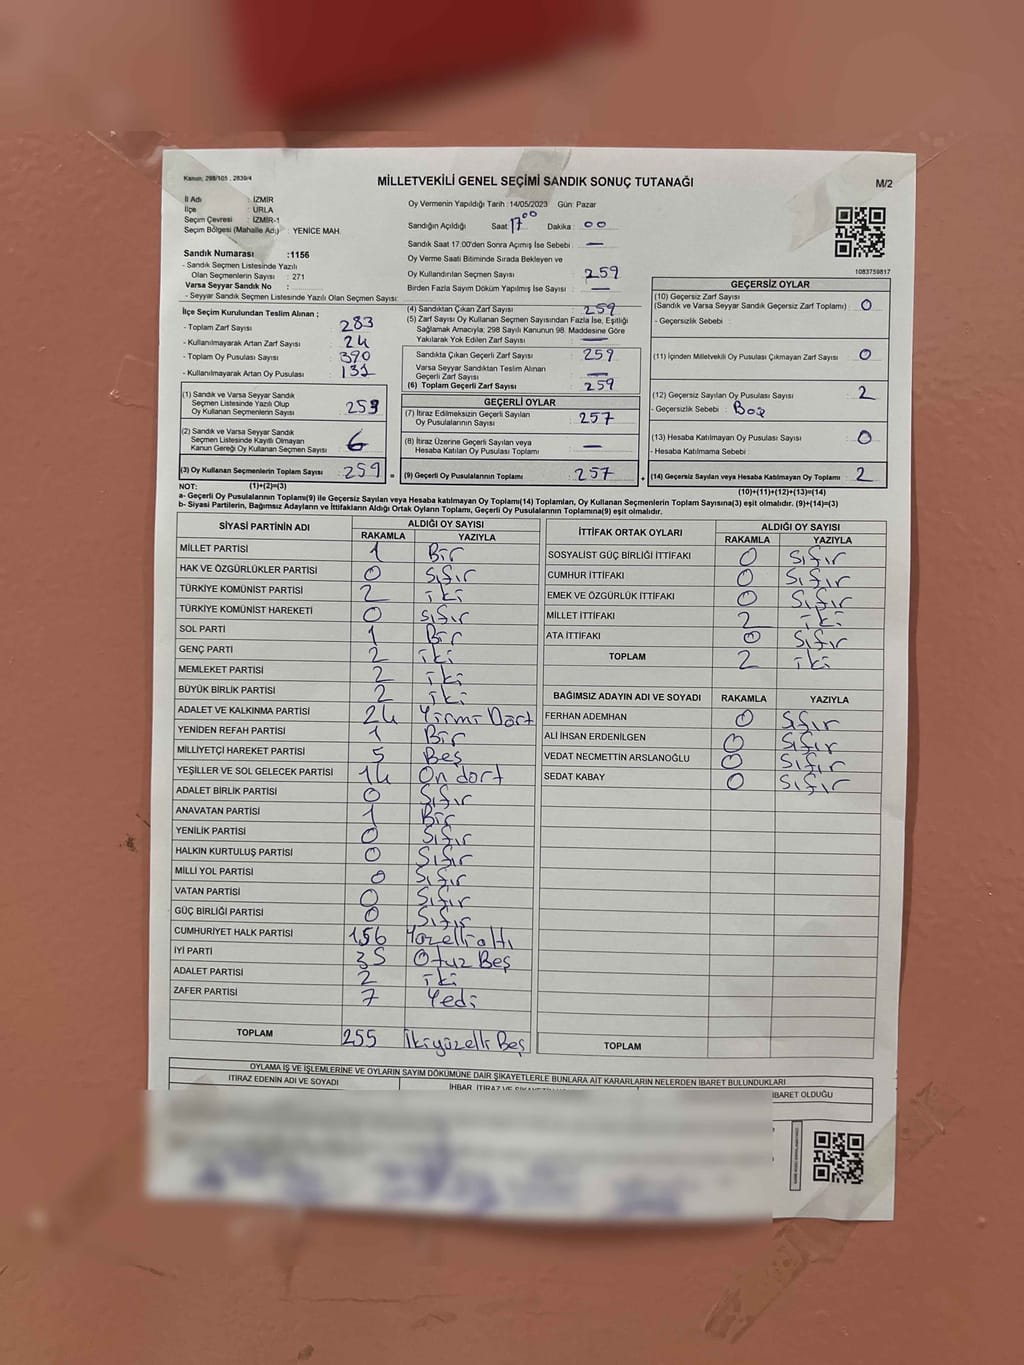 Kanun: 298/105 , 2839/4
MİLLETVEKİLİ GENEL SEÇİMİ SANDIK SONUÇ TUTANAĞI
M/2
İl Adı : İZMİR
İlçe : URLA
Seçim Çevresi : İZMİR-1
Seçim Bölgesi (Mahalle Adı) : YENİCE MAH.
Sandık Numarası :1156
- Sandık Seçmen Listesinde Yazılı
Olan Seçmenlerin Sayısı : 271
Varsa Seyyar Sandık No :
- Seyyar Sandık Seçmen Listesinde Yazılı Olan Seçmen Sayısı:
İlçe Seçim Kurulundan Teslim Alınan ;
- Toplam Zarf Sayısı : 283
- Kullanılmayarak Artan Zarf Sayısı : 24
- Toplam Oy Pusulası Sayısı : 390
- Kullanılmayarak Artan Oy Pusulası : 131
(1) Sandık ve Varsa Seyyar Sandık
Seçmen Listesinde Yazılı Olup
Oy Kullanan Seçmenlerin Sayısı : 253
(2) Sandık ve Varsa Seyyar Sandık
Seçmen Listesinde Kayıtlı Olmayan
Kanun Gereği Oy Kullanan Seçmen Sayısı : 6
(3) Oy Kullanan Seçmenlerin Toplam Sayısı : 259
Oy Vermenin Yapıldığı Tarih : 14/05/2023 Gün: Pazar
Sandığın Açıldığı Saat: 17⁰⁰ Dakika : 00
Sandık Saat 17.00'den Sonra Açımış İse Sebebi : —
Oy Verme Saati Bitiminde Sırada Bekleyen ve
Oy Kullandırılan Seçmen Sayısı : 259
Birden Fazla Sayım Döküm Yapılmış İse Sayısı : —
(4) Sandıktan Çıkan Zarf Sayısı : 259
(5) Zarf Sayısı Oy Kullanan Seçmen Sayısından Fazla İse, Eşitliği
Sağlamak Amacıyla; 298 Sayılı Kanunun 98. Maddesine Göre
Yakılarak Yok Edilen Zarf Sayısı : —
Sandıkta Çıkan Geçerli Zarf Sayısı : 259
Varsa Seyyar Sandıktan Teslim Alınan
Geçerli Zarf Sayısı : —
(6) Toplam Geçerli Zarf Sayısı : 259
GEÇERLİ OYLAR
(7) İtiraz Edilmeksizin Geçerli Sayılan
Oy Pusulalarının Sayısı : 257
(8) İtiraz Üzerine Geçerli Sayılan veya
Hesaba Katılan Oy Pusulası Toplamı : —
= (9) Geçerli Oy Pusulalarının Toplamı : 257
1083759817
GEÇERSİZ OYLAR
(10) Geçersiz Zarf Sayısı
(Sandık ve Varsa Seyyar Sandık Geçersiz Zarf Toplamı) : 0
- Geçersizlik Sebebi :
(11) İçinden Milletvekili Oy Pusulası Çıkmayan Zarf Sayısı : 0
(12) Geçersiz Sayılan Oy Pusulası Sayısı : 2
- Geçersizlik Sebebi : Boş
(13) Hesaba Katılmayan Oy Pusulası Sayısı : 0
- Hesaba Katılmama Sebebi :
+ (14) Geçersiz Sayılan veya Hesaba Katılmayan Oy Toplamı : 2
NOT: (1)+(2)=(3) (10)+(11)+(12)+(13)=(14)
a- Geçerli Oy Pusulalarının Toplamı(9) ile Geçersiz Sayılan veya Hesaba katılmayan Oy Toplamı(14) Toplamları, Oy Kullanan Seçmenlerin Toplam Sayısına(3) eşit olmalıdır. (9)+(14)=(3)
b- Siyasi Partilerin, Bağımsız Adayların ve İttifakların Aldığı Ortak Oyların Toplamı, Geçerli Oy Pusulalarının Toplamına(9) eşit olmalıdır.
SİYASİ PARTİNİN ADI ALDIĞI OY SAYISI
RAKAMLA YAZIYLA
MİLLET PARTİSİ 1 Bir
HAK VE ÖZGÜRLÜKLER PARTİSİ 0 sıfır
TÜRKİYE KOMÜNİST PARTİSİ 2 iki
TÜRKİYE KOMÜNİST HAREKETİ 0 sıfır
SOL PARTİ 1 Bir
GENÇ PARTİ 2 iki
MEMLEKET PARTİSİ 2 iki
BÜYÜK BİRLİK PARTİSİ 2 iki
ADALET VE KALKINMA PARTİSİ 24 Yirmi Dört
YENİDEN REFAH PARTİSİ 1 Bir
MİLLİYETÇİ HAREKET PARTİSİ 5 Beş
YEŞİLLER VE SOL GELECEK PARTİSİ 14 On dört
ADALET BİRLİK PARTİSİ 0 Sıfır
ANAVATAN PARTİSİ 1 Bir
YENİLİK PARTİSİ 0 Sıfır
HALKIN KURTULUŞ PARTİSİ 0 Sıfır
MİLLİ YOL PARTİSİ 0 Sıfır
VATAN PARTİSİ 0 Sıfır
GÜÇ BİRLİĞİ PARTİSİ 0 Sıfır
CUMHURİYET HALK PARTİSİ 156 Yüzelli altı
İYİ PARTİ 35 Otuz Beş
ADALET PARTİSİ 2 iki
ZAFER PARTİSİ 7 Yedi
TOPLAM 255 İkiyüzelli Beş
İTTİFAK ORTAK OYLARI ALDIĞI OY SAYISI
RAKAMLA YAZIYLA
SOSYALİST GÜÇ BİRLİĞİ İTTİFAKI 0 sıfır
CUMHUR İTTİFAKI 0 sıfır
EMEK VE ÖZGÜRLÜK İTTİFAKI 0 sıfır
MİLLET İTTİFAKI 2 iki
ATA İTTİFAKI 0 sıfır
TOPLAM 2 iki
BAĞIMSIZ ADAYIN ADI VE SOYADI RAKAMLA YAZIYLA
FERHAN ADEMHAN 0 Sıfır
ALİ İHSAN ERDENİLGEN 0 Sıfır
VEDAT NECMETTİN ARSLANOĞLU 0 Sıfır
SEDAT KABAY 0 Sıfır
TOPLAM
OYLAMA İŞ VE İŞLEMLERİNE VE OYLARIN SAYIM DÖKÜMÜNE DAİR ŞİKAYETLERLE BUNLARA AİT KARARLARIN NELERDEN İBARET BULUNDUKLARI
İTİRAZ EDENİN ADI VE SOYADI
İHBAR, İTİRAZ VE
İBARET OLDUĞU